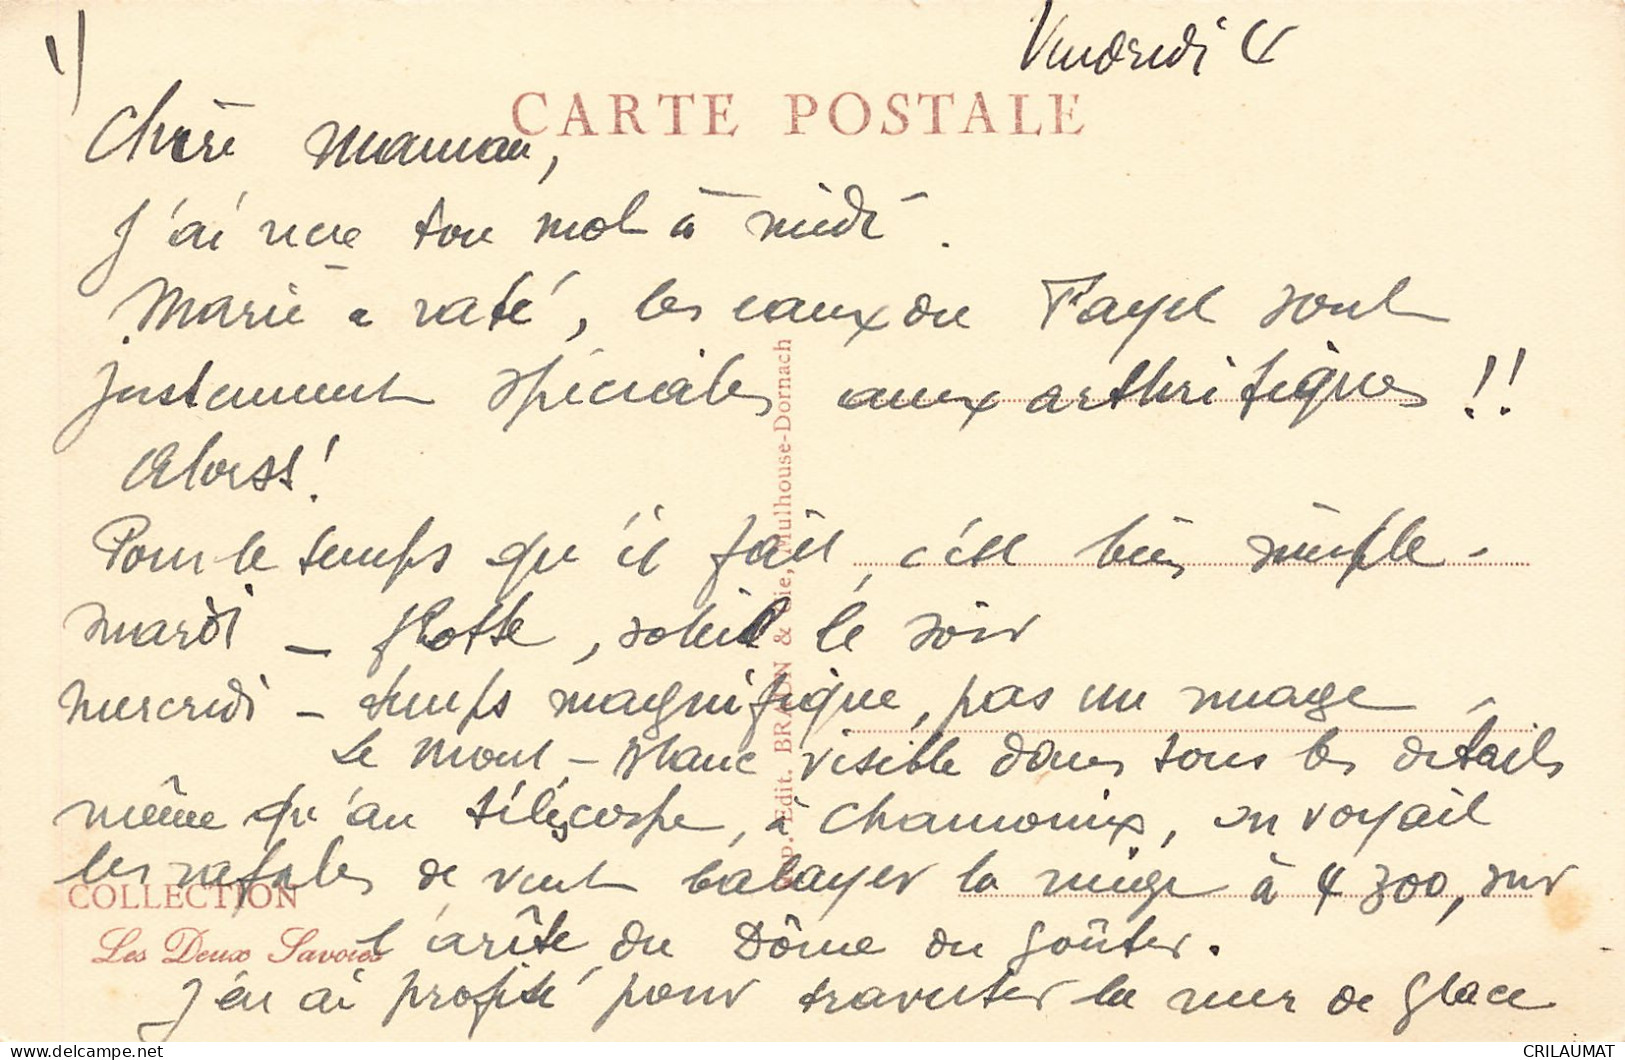 1/
Vendredi 4
CARTE POSTALE
Chère Maman,
J'ai reçu ton mot à midi.
Marie a raté, les eaux du Fayet sont
justement spéciales aux arthritiques !!
Alorss !
Pour le temps qu'il fait, c'est bien simple -
mardi - flotte, soleil le soir
mercredi - temps magnifique, pas un nuage -
Le Mont-Blanc visible dans tous les détails
même qu'au télescope, à Chamonix, on voyait
les rafales de vent balayer la neige à 4300, sur
l'arête du Dôme du Goûter.
J'en ai profité pour traverser la mer de glace
COLLECTION
Les Deux Savoies
Imp. Edit. BRAUN & Cie, Mulhouse-Dornach
CRILAUMAT